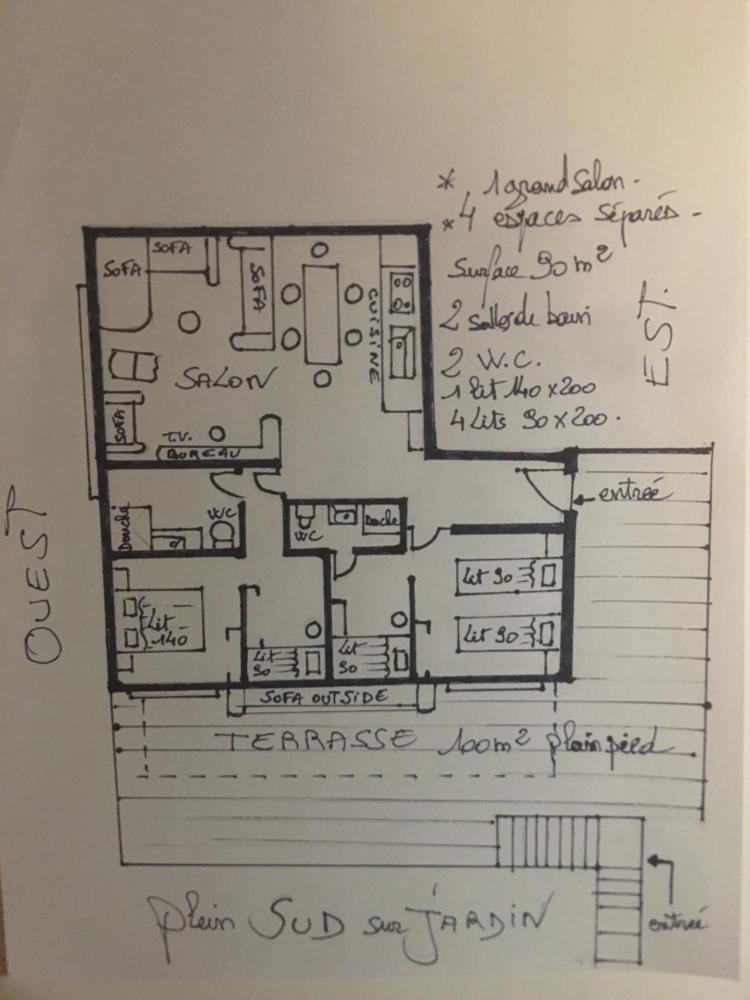 * 1 grand Salon -
* 4 espaces séparés -
Surface 90 m²
2 salles de bain
2 W.C.
1 lit 140 x 200
4 Lits 90 x 200.
EST.
OUEST
SOFA
SOFA
SOFA
CUISINE
SALON
SOFA
T.V.
BUREAU
entrée
Douche
WC
WC
Douche
Lit 90
Lit 140
Lit 90
Lit 90
Lit 90
SOFA OUTSIDE
TERRASSE 100m² plain pied
plein SUD sur JARDIN
entrée